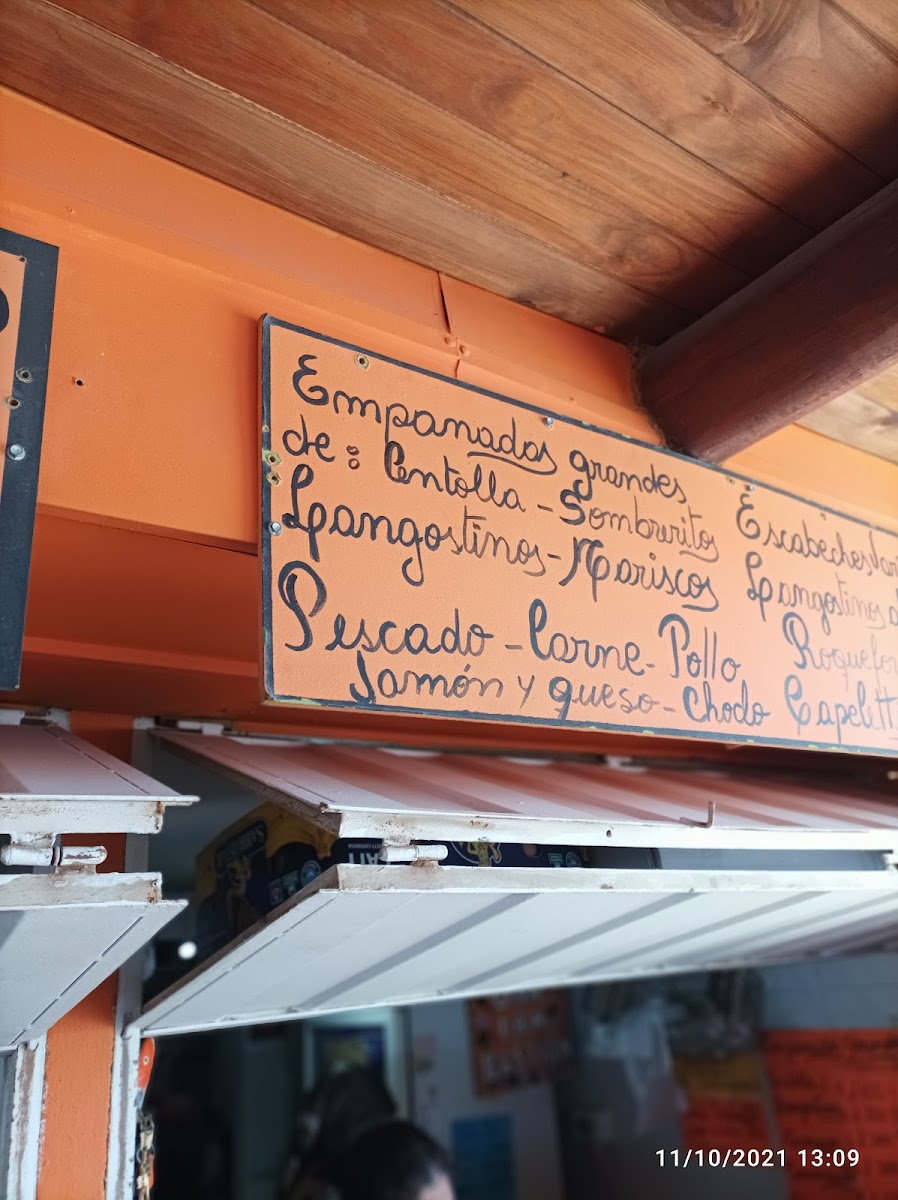 Empanadas grandes
de: Centolla - Sombreritos
Langostinos - Mariscos
Pescado - Carne - Pollo
Jamón y queso - Chodo
Escabèches
Langostinos
11/10/2021 13:09